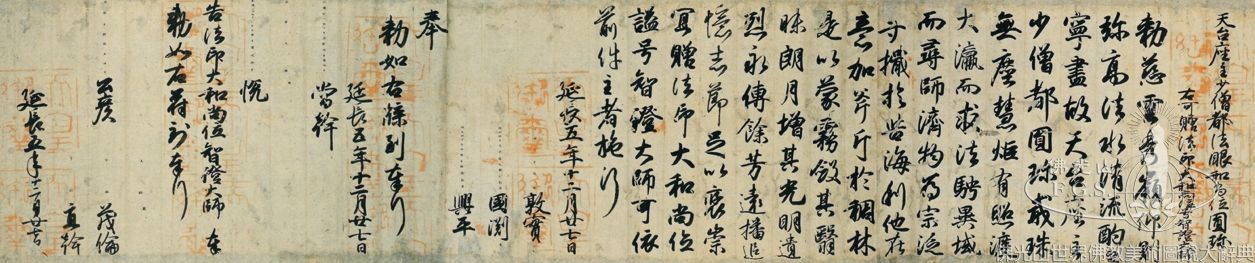 天台座主少僧都法眼和尚位圓珎
右可贈法印大和尚位号智證大師
勅慈雲秀嶺仰則
弥高法水清流酌之
寧盡故天台座主
少僧都圓珎戒珠
無塵慧炬有照渡
大瀛而求法騁異域
而尋師濟物為宗泛
寸檝於苦海利他在
意加斧斤於稠林
是以蒙霧斂其翳
昧朗月增其光明遺
烈永傳餘芳遠播追
憶志節足以褒崇
冝贈法印大和尚位
謚号智證大師可依
前件主者施行
延長五年十二月廿七日
敦實
國淵
興平
奉
勅如右牒到奉行
延長五年十二月廿七日
當幹
悅
告法印大和尚位智證大師 奉
勅如右符到奉行
公廣 茂倫
直幹
延長五年十二月廿七日
佛光山世界佛教美術圖說大辭典